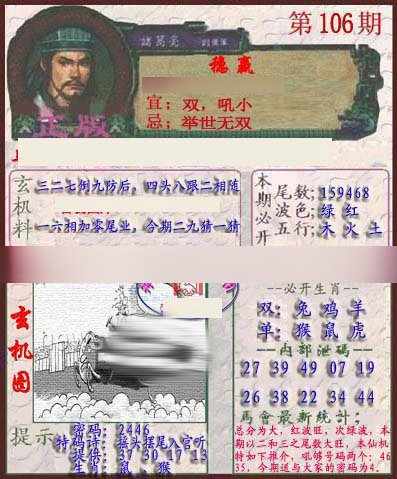 第106期
諸葛亮 劉伯軍
穩贏
宜；双，吼小
忌；举世无双
正版
玄机料
三二七倒九防后，四头八跟二相随
一六相加零尾业，今期二九猜一猜
本期必开
尾数；159468
波色；绿 红
五行；木 火 土
玄机图
必开生肖
双：兔 鸡 羊
单：猴 鼠 虎
内部泄码
27 39 49 07 19
26 38 22 34 44
馬會最新統計：
总分为大，红波旺，次绿波，本期以二和三之尾数大旺，本仙机特如下推介，吼够号码两个：4635，今期送与大家的密码为4.
提示
密码：2446
特码诗：摇头摆尾入官听
提供：37 30 17 13
生肖：鼠、猴